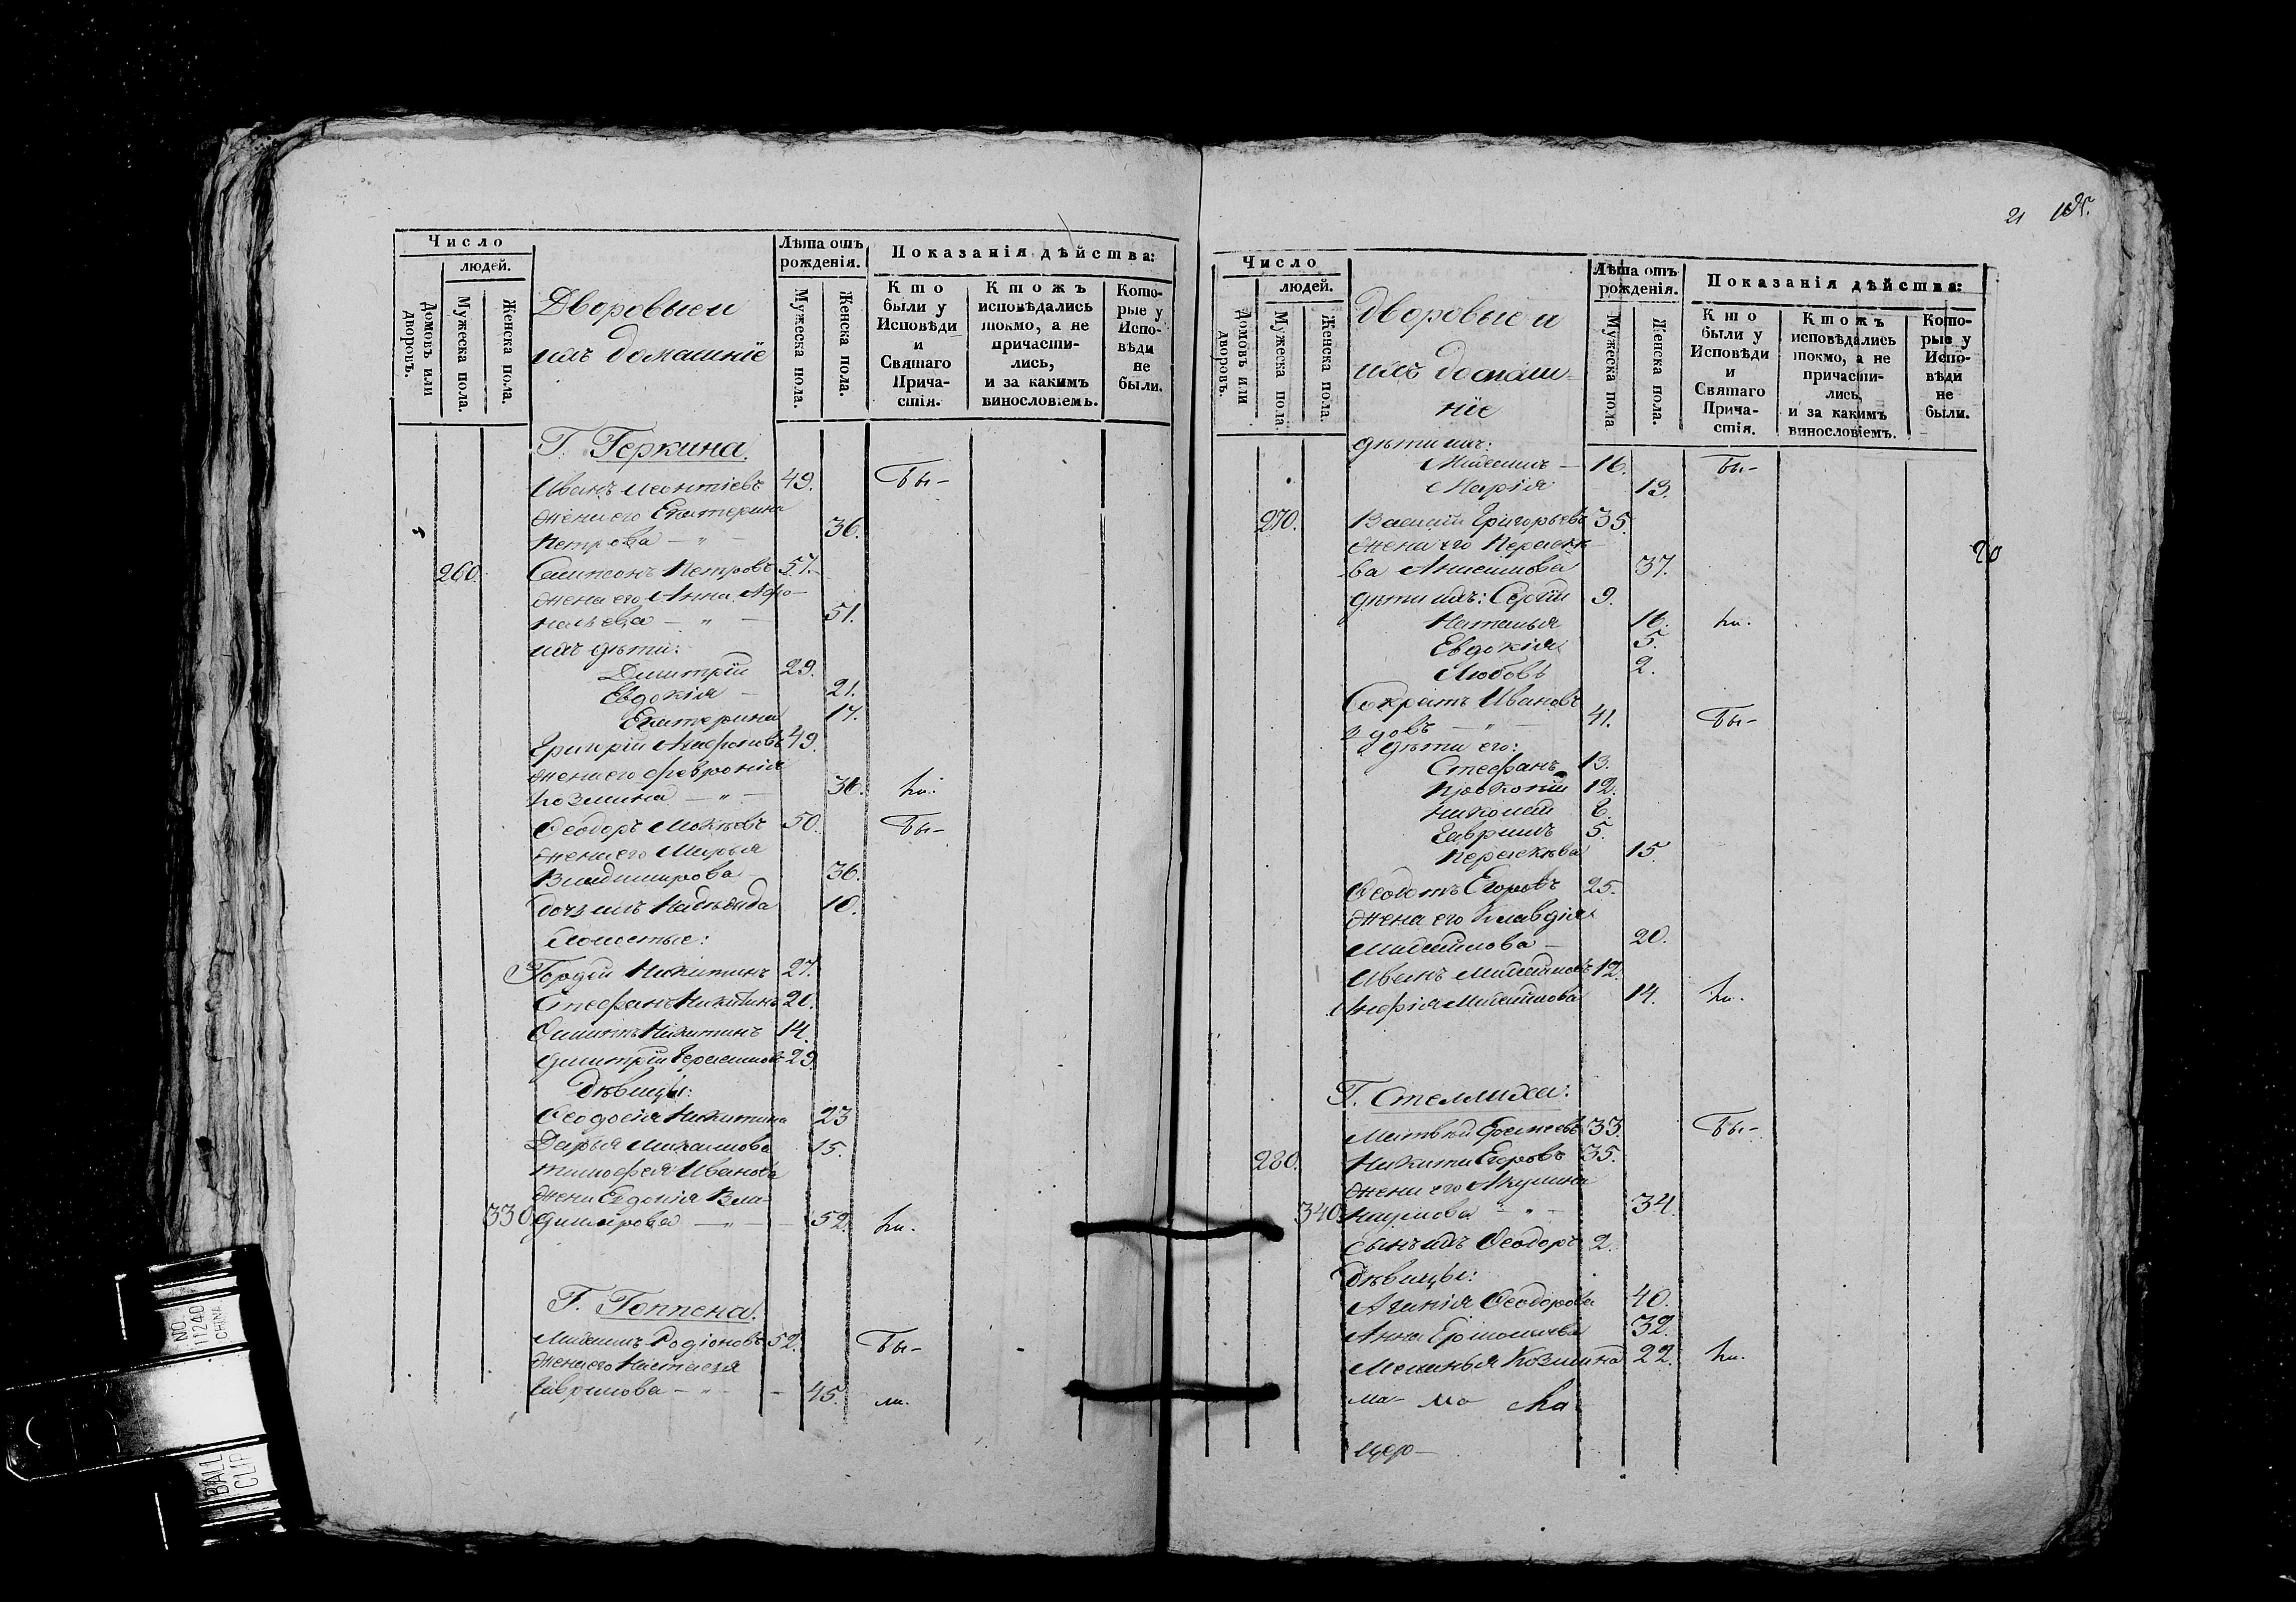 Число
людей.
Домовъ или дворовъ.
Мужеска пола.
Женска пола.
Дворовые и
ихъ домашніе
Лѣта отъ рожденія.
Мужеска пола.
Женска пола.
Показанія дѣйства:
Кто были у Исповѣди и Святаго Причастія.
Ктожъ исповѣдались токмо, а не причастились, и за какимъ винословіемъ.
Которые у Исповѣди не были.
Г. Геркина.
Иванъ Леонтіевъ 49. Бы-
жена его Екатерина
Петрова — " — 36.
260. Симеонъ Петровъ 57.
жена его Анна
51.
ихъ дѣти:
Димитрій 29.
Евдокія — 21.
Екатерина 17.
Григорій 49.
жена его Феврония
Козмина — " — 36. ли.
Ѳеодоръ 50. Бы-
жена его Марья
Владимирова 36.
дочь ихъ 10.
Холостые:
Гордѣй Никитинъ 27.
Стефанъ Никитинъ 20.
Никитинъ 14.
Димитрій Герасимовъ 29.
Дѣвицы:
Ѳеодосія Никитина 23
Дарья Михаилова 15.
Тимофея Иванова
жена Евдокія Вла-
330. димирова — " — 52. ли.
Г. Гоппена.
Михаилъ Родіоновъ 52. Бы-
жена его Настасья
Гаврилова — " — 45. ли.
21
Число
людей.
Домовъ или дворовъ.
Мужеска пола.
Женска пола.
Дворовые и
ихъ домаш-
ніе
Лѣта отъ рожденія.
Мужеска пола.
Женска пола.
Показанія дѣйства:
Кто были у Исповѣди и Святаго Причастія.
Ктожъ исповѣдались токмо, а не причастились, и за какимъ винословіемъ.
Которые у Исповѣди не были.
дѣти ихъ:
Михаилъ — 16. Бы-
Марія 13.
270. Василій Григорьевъ 35.
жена его Параске-
ва Анисимова 37.
дѣти ихъ: Сергій 9.
Наталья 16. ли.
Евдокія 5.
Любовь 2.
Сократъ Ивановъ
вдовъ — " — 41. Бы-
дѣти его:
Стефанъ 13.
Прокопій 12.
Николай
Гавриилъ 5.
Параскѣва 15.
Ѳеодотъ Егоровъ 25.
жена его Клавдія
Михайлова — 20.
Иванъ Михайловъ 12.
Михайлова 14. ли.
Г. Стеллиха:
Матвѣй 33. Бы-
280. Никита Егоровъ 35.
жена его Акулина
340. Наумова — " — 34.
сынъ ихъ Ѳеодоръ 2.
Дѣвицы:
Ѳеодорова 40.
Анна 32.
Меланья Козмина 22. ли.
20